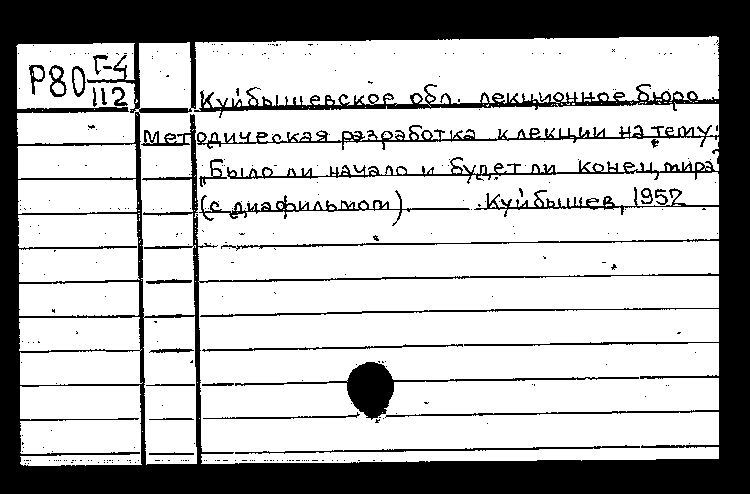 Р80 Г-4
112
Куйбышевское обл. лекционное бюро.
Методическая разработка к лекции на тему:
"Было ли начало и будет ли конец мира"
(с диафильмом). Куйбышев, 1957